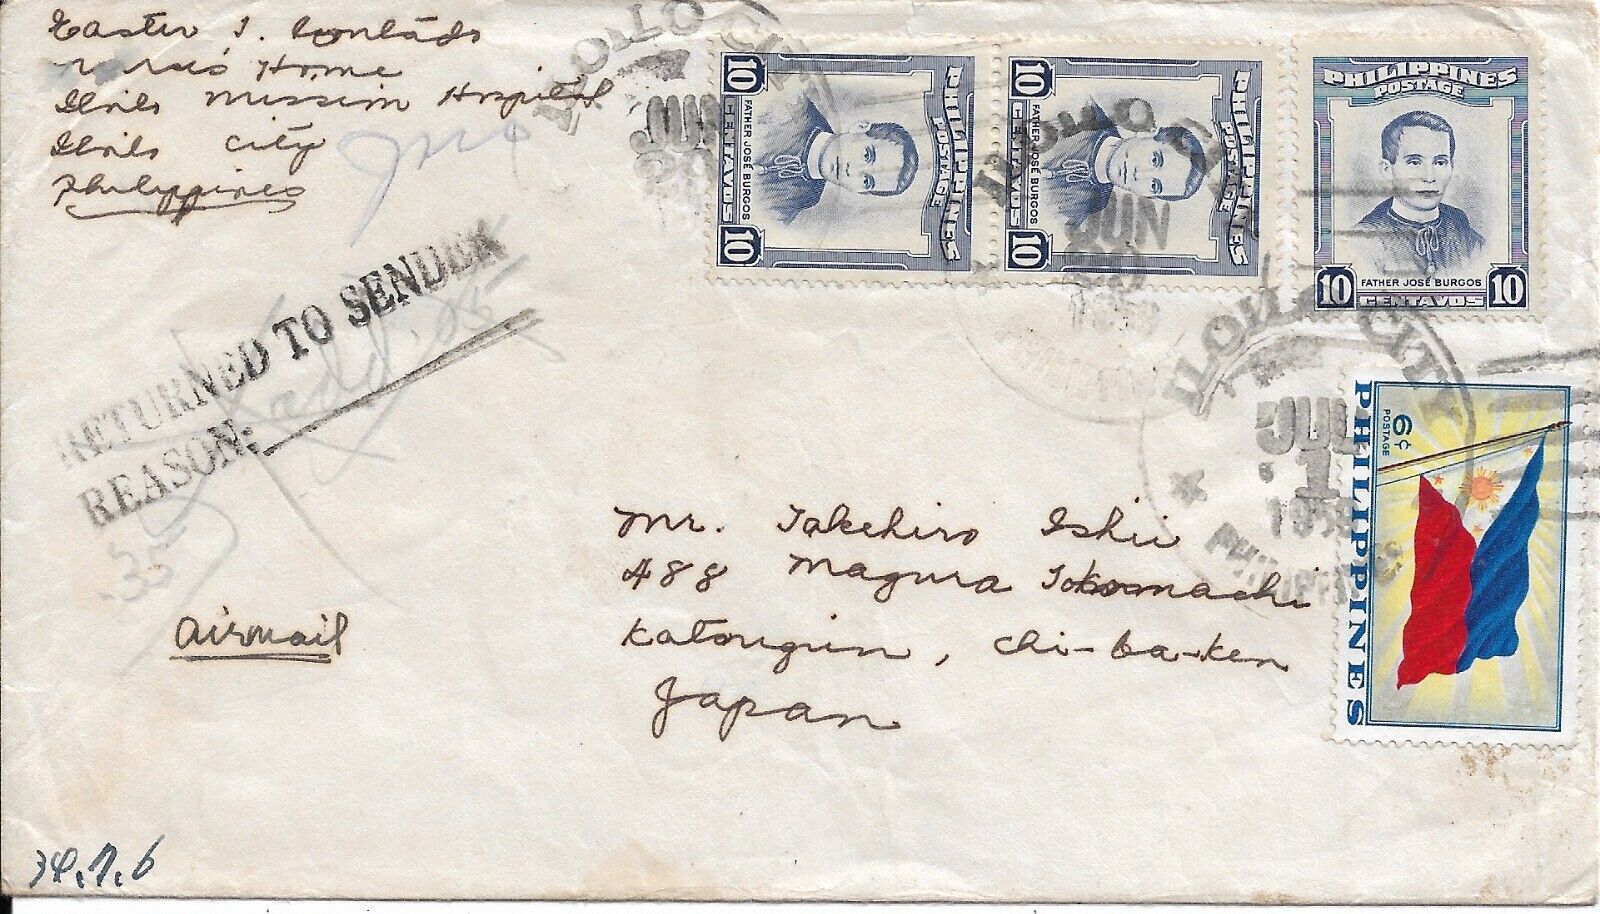 Easter J.
Home
Iloilo Mission Hospital
Iloilo City
Philippines
ILOILO CITY
JUN
ILOILO CITY
JUN
ILOILO CITY
JUL
1
1959
PHILIPPINES
PHILIPPINES
POSTAGE
FATHER JOSÉ BURGOS
10 CENTAVOS 10
PHILIPPINES
POSTAGE
FATHER JOSÉ BURGOS
10 CENTAVOS 10
PHILIPPINES
POSTAGE
FATHER JOSÉ BURGOS
10 CENTAVOS 10
6¢
POSTAGE
PHILIPPINES
RETURNED TO SENDER
REASON:
.35
Mr. Takehiro Ishii
488 Magura Tokomachi
Katsugun, Chi-ba-ken
Japan
Airmail
34.7.6